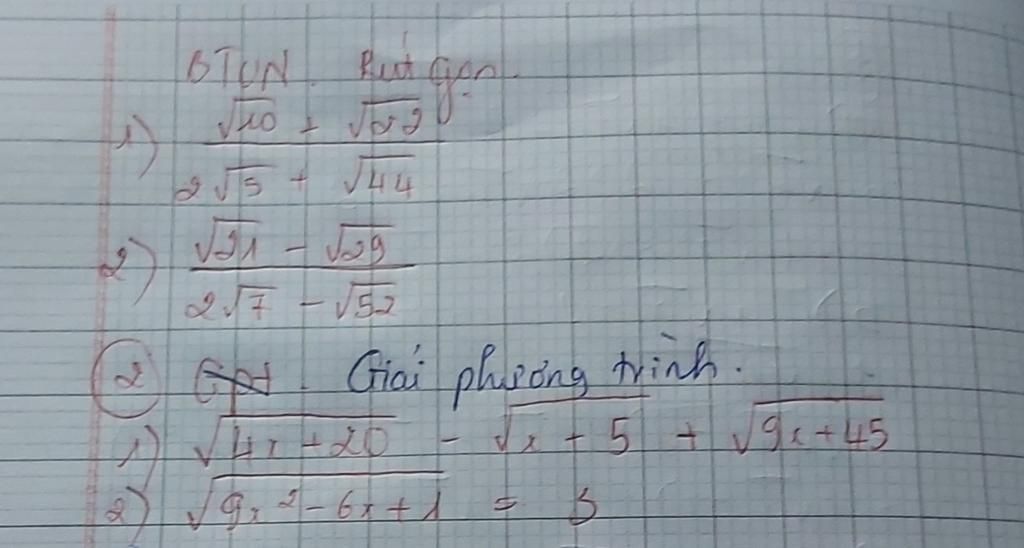 BTVN. Rút gọn.
1) (√10 + √22) / (2√5 + √44)
2) (√21 - √29) / (2√7 - √52)
② Giải phương trình.
1) √(4x+20) - √(x+5) + √(9x+45)
2) √(9x² - 6x + 1) =